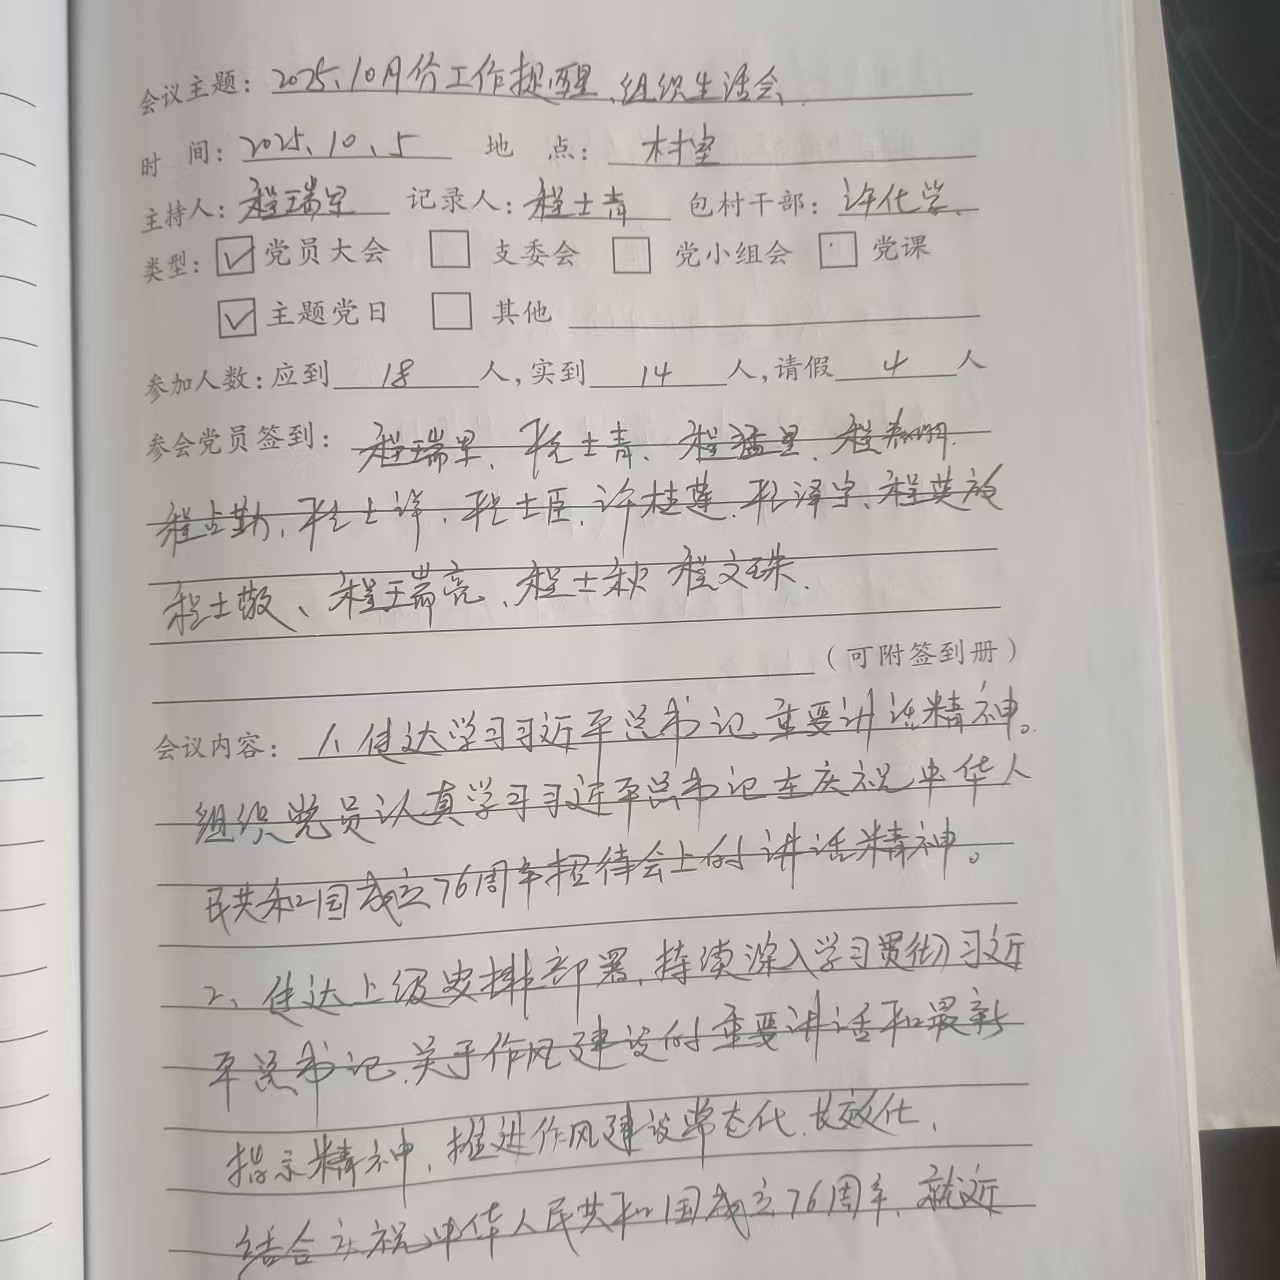 会议主题：2025、10月份工作提醒、组织生活会、
时 间：2025、10、5 地 点：村室
主持人：程瑞里 记录人：程士青 包村干部：许化学、
类型：☑党员大会 □ 支委会 □ 党小组会 □ 党课
☑主题党日 □ 其他
参加人数：应到 18 人，实到 14 人，请假 4 人
参会党员签到：程瑞里、程士青、程猛里、程
程占勤、程士祥、程士臣、许桂莲、程泽宇、程英放
程士敬、程瑞亮、程士秋 程文珠.
（可附签到册）
会议内容：1、传达学习习近平总书记重要讲话精神。
组织党员认真学习习近平总书记在庆祝中华人
民共和国成立76周年招待会上的讲话精神。
2、传达上级安排部署，持续深入学习贯彻习近
平总书记关于作风建设的重要讲话和最新
指示精神，推进作风建设常态化、长效化，
结合庆祝中华人民共和国成立76周年、就近